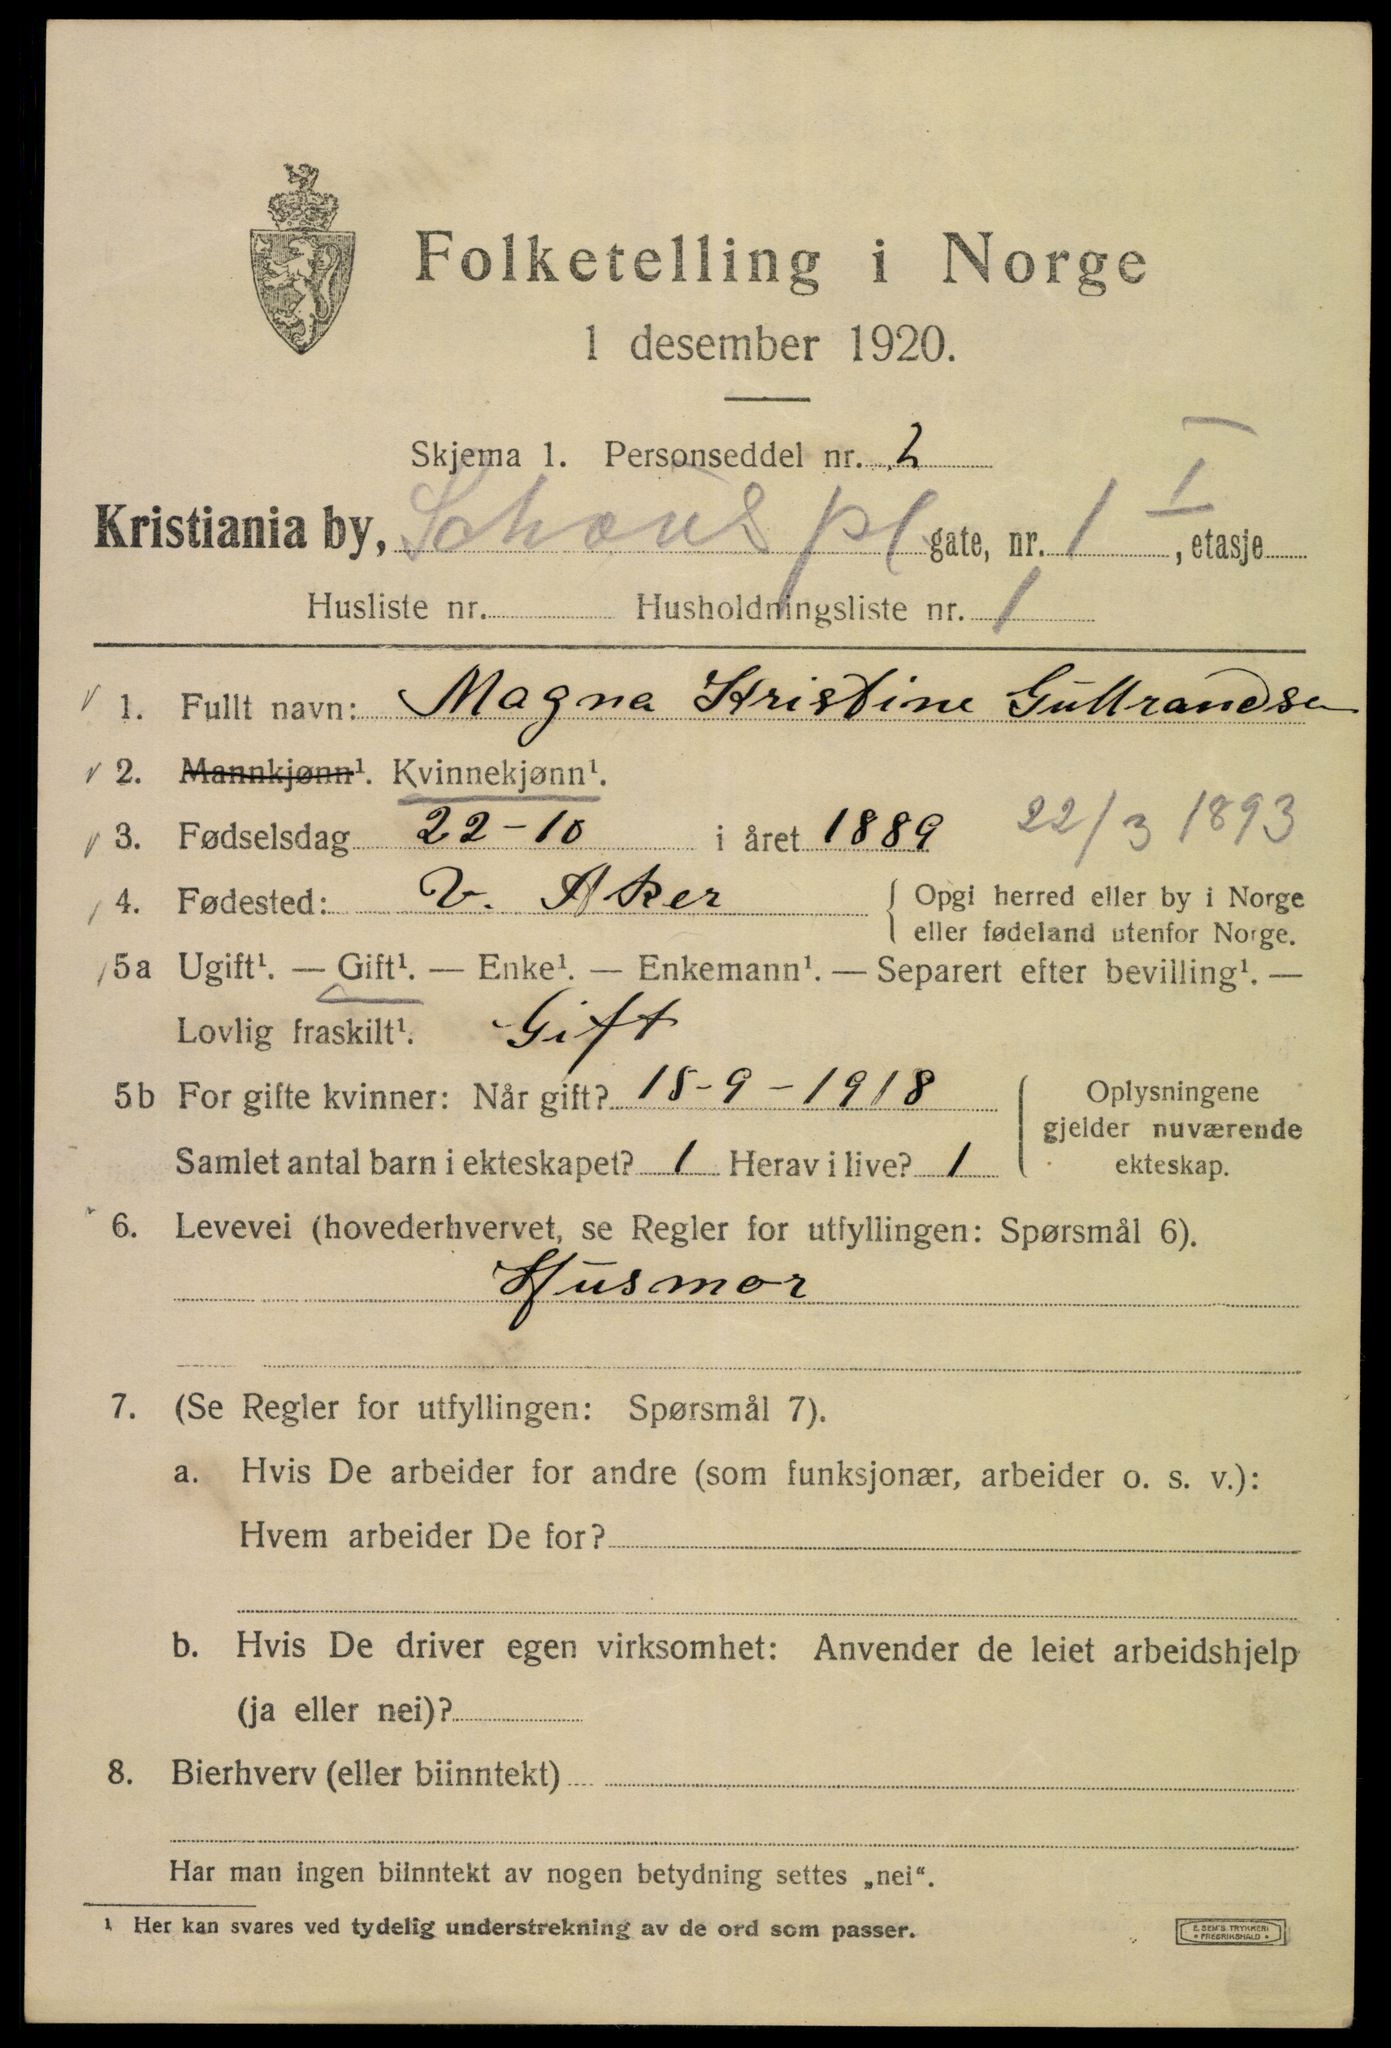 Folketelling i Norge
1 desember 1920.
Skjema 1. Personseddel nr. 2
Kristiania by, Schous pl gate, nr. 1 I, etasje
Husliste nr. Husholdningsliste nr. 1
1. Fullt navn: Magna Kristine Gulbrandsen
2. Mannkjønn¹. Kvinnekjønn¹.
3. Fødselsdag 22-10 i året 1889 22/3 1893
4. Fødested: V. Aker { Opgi herred eller by i Norge
eller fødeland utenfor Norge.
5a Ugift¹. — Gift¹. — Enke¹. — Enkemann¹. — Separert efter bevilling¹. —
Lovlig fraskilt¹. Gift
5b For gifte kvinner: Når gift? 15-9-1918
Samlet antal barn i ekteskapet? 1 Herav i live? 1
Oplysningene
gjelder nuværende
ekteskap.
6. Levevei (hovederhvervet, se Regler for utfyllingen: Spørsmål 6).
Husmor
7. (Se Regler for utfyllingen: Spørsmål 7).
a. Hvis De arbeider for andre (som funksjonær, arbeider o. s. v.):
Hvem arbeider De for?
b. Hvis De driver egen virksomhet: Anvender de leiet arbeidshjelp
(ja eller nei)?
8. Bierhverv (eller biinntekt)
Har man ingen biinntekt av nogen betydning settes „nei“.
¹ Her kan svares ved tydelig understrekning av de ord som passer.
E. SEM'S TRYKKERI
• FREDRIKSHALD •